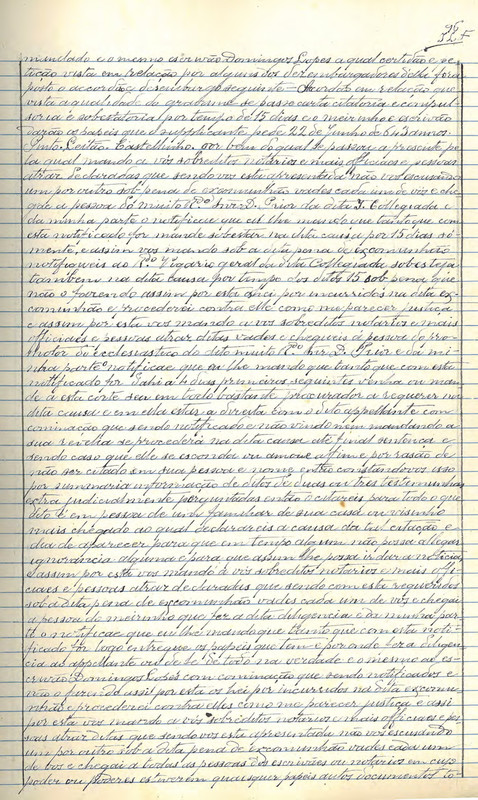 95
32 F
mandado e o mesmo escrivão Domingos Lopes a qual certidão e pe-
tição vista em relação por alguns dos desembargadores della fora
posto o accordão e desembargo seguinte = Acordão em relação que
vista a qualidade do gravame se passe carta citatoria e compul-
soria e sobestatoria por tempo de 15 dias e o meirinho e escrivão
darão os papeis que o supplicante pede 22 de Junho de 643 annos.
Pinto, Leitão, Castellinho, por bem do qual se passou a presente pe-
la qual mando a vós sobreditos notarios e mais officiaes e pessoas
atraz declaradas que sendo vos esta apresentada não vos escusando
um por outro sob pena de excommunhão vades cada um de vós e che-
gue a pessoa do muito Rdo Snr. D. Prior da dita I. Collegiada e
da minha parte o notifique que eu lhe mando que tanto que com
esta notificado for mande sobestar na dita causa por 15 dias só-
mente, e assim vos mando sob a dita pena de excommunhão
notifiqueis ao Rdo Vigario geral da dita Collegiada sobesteja
tambem na dita causa por tempo dos ditos 15 sob pena que
não o fazendo assim por esta o hei por incurridos na dita ex-
communhão e procederei contra elle como me parecer justiça
e assim por esta vos mando a vós sobreditos notarios e mais
officiaes e pessoas atraz ditas vades e chegueis á pessoa do pro-
motor do ecclesiastico do dito muito Rdo Snr. D. Prior e da mi-
nha parte o notificae que eu lhe mando que tanto que com esta
notificado for d'ahi a duas primeiras seguintes venha ou man-
de a esta corte seu em todo bastante procurador a requerer na
dita causa e em ella estar a direito com o dito appellante com
cominação que sendo notificado e não vindo nem mandando a
sua revelia se procederá na dita causa até final sentença e
sendo caso que elle se esconda ou ausente a fim e por rasão de
não ser citado em sua pessoa e nome, então constando vos isso
por summaria informação de ditos de duas ou tres testemunhas
extra judicialmente perguntadas então o citareis para todo o que
dito é em pessoa de um familiar de sua casa ou visinho
mais chegado ao qual declarareis a causa da tal citação e
dia de aparecer para que em tempo algum não possa allegar
ignorancia alguma e para que assim lhe possa ir dar a noticia
e assim por esta vos mando a vós sobreditos notarios e mais offi-
ciaes e pessoas atraz declaradas que sendo com esta requeridos
sob a dita pena de excommunhão vades cada um de vós e chegai
a pessoa do meirinho que fez a dita diligencia e da minha par-
te o notificae que eu lhe mando que tanto que com esta noti-
ficado for logo entregue os papeis que tem e por onde fez a diligen-
cia ao appellante ou dê fé de tudo na verdade e o mesmo ao es-
crivão Domingos Lopes com cominação que sendo notificados e
não o fazendo assi por esta os hei por incurridos na dita excommu-
nhão e procederei contra elles como me parecer justiça e assi
por esta vos mando a vós sobreditos notarios e mais officiaes e pes-
soas atraz ditas que sendo vos esta apresentada não vos escusando
um por outro sob a dita pena de excommunhão vades cada um
de vós e chegai a todas as pessoas dos escrivães ou notarios em cujo
poder ou poderes estiverem quaesquer papeis autos documentos to-